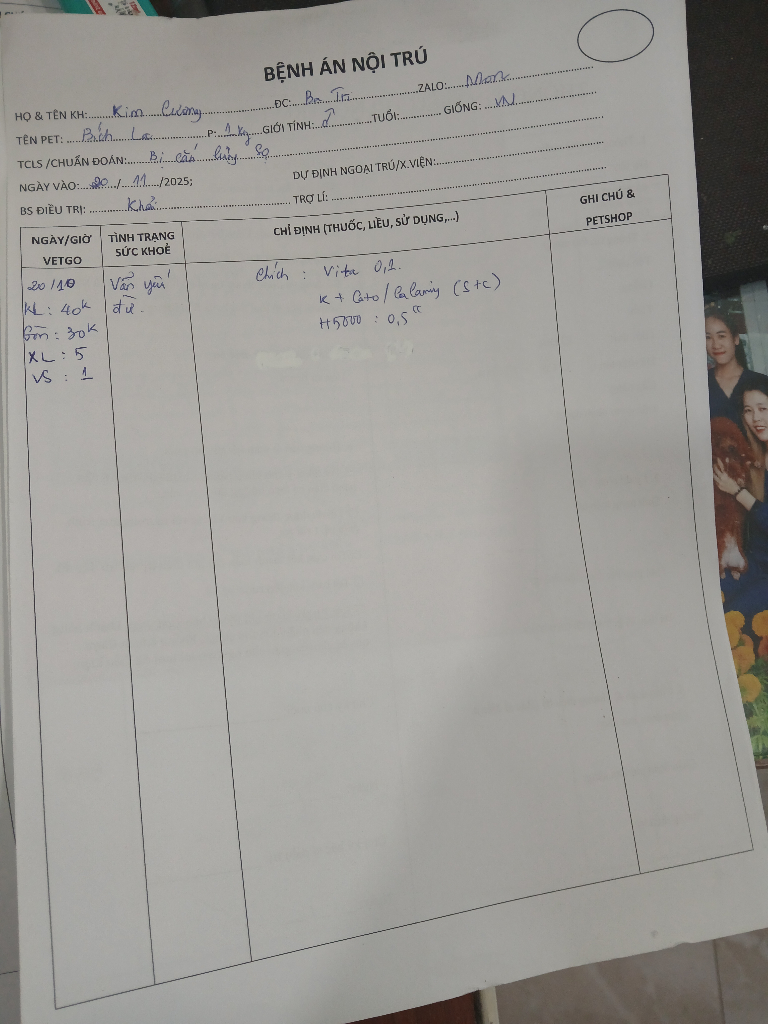 BỆNH ÁN NỘI TRÚ
HỌ & TÊN KH: Kim Cương ĐC: Ba Tri ZALO:
TÊN PET: Bách La P: 1 kg GIỚI TÍNH: ♂ TUỔI: GIỐNG: VN
TCLS /CHUẨN ĐOÁN: Bị cắn lủng sọ
NGÀY VÀO: 20 / 11 /2025; DỰ ĐỊNH NGOẠI TRÚ/X.VIỆN:
BS ĐIỀU TRỊ: Khải TRỢ LÍ:
NGÀY/GIỜ VETGO
TÌNH TRẠNG SỨC KHOẺ
CHỈ ĐỊNH (THUỐC, LIỀU, SỬ DỤNG,...)
GHI CHÚ & PETSHOP
20/10
KL: 40K
Gòn: 30K
XL: 5
VS: 1
Vẫn yếu
đừ.
Chích: Vita 0,1.
K + Cato/Calamig (S+C)
H5000: 0,5cc